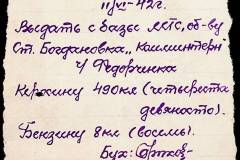 11/VI-42г.
Выдать с базы МТС, об-ву
Ст. Богдановка „Каминтерн"
ч/ Федорченка
Керосину 490кг (четыреста
девяносто).
Бензину 8кг (восемь).
Бух: